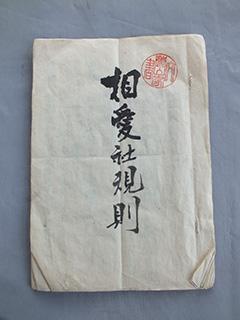 相愛社規則